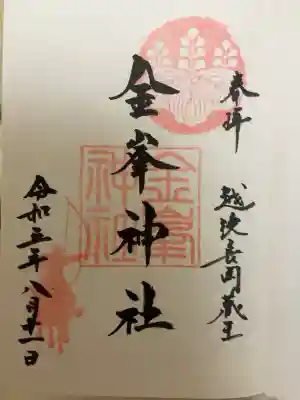 奉拝
越後長岡蔵王
金峯神社
令和三年八月十一日
金峯
神社